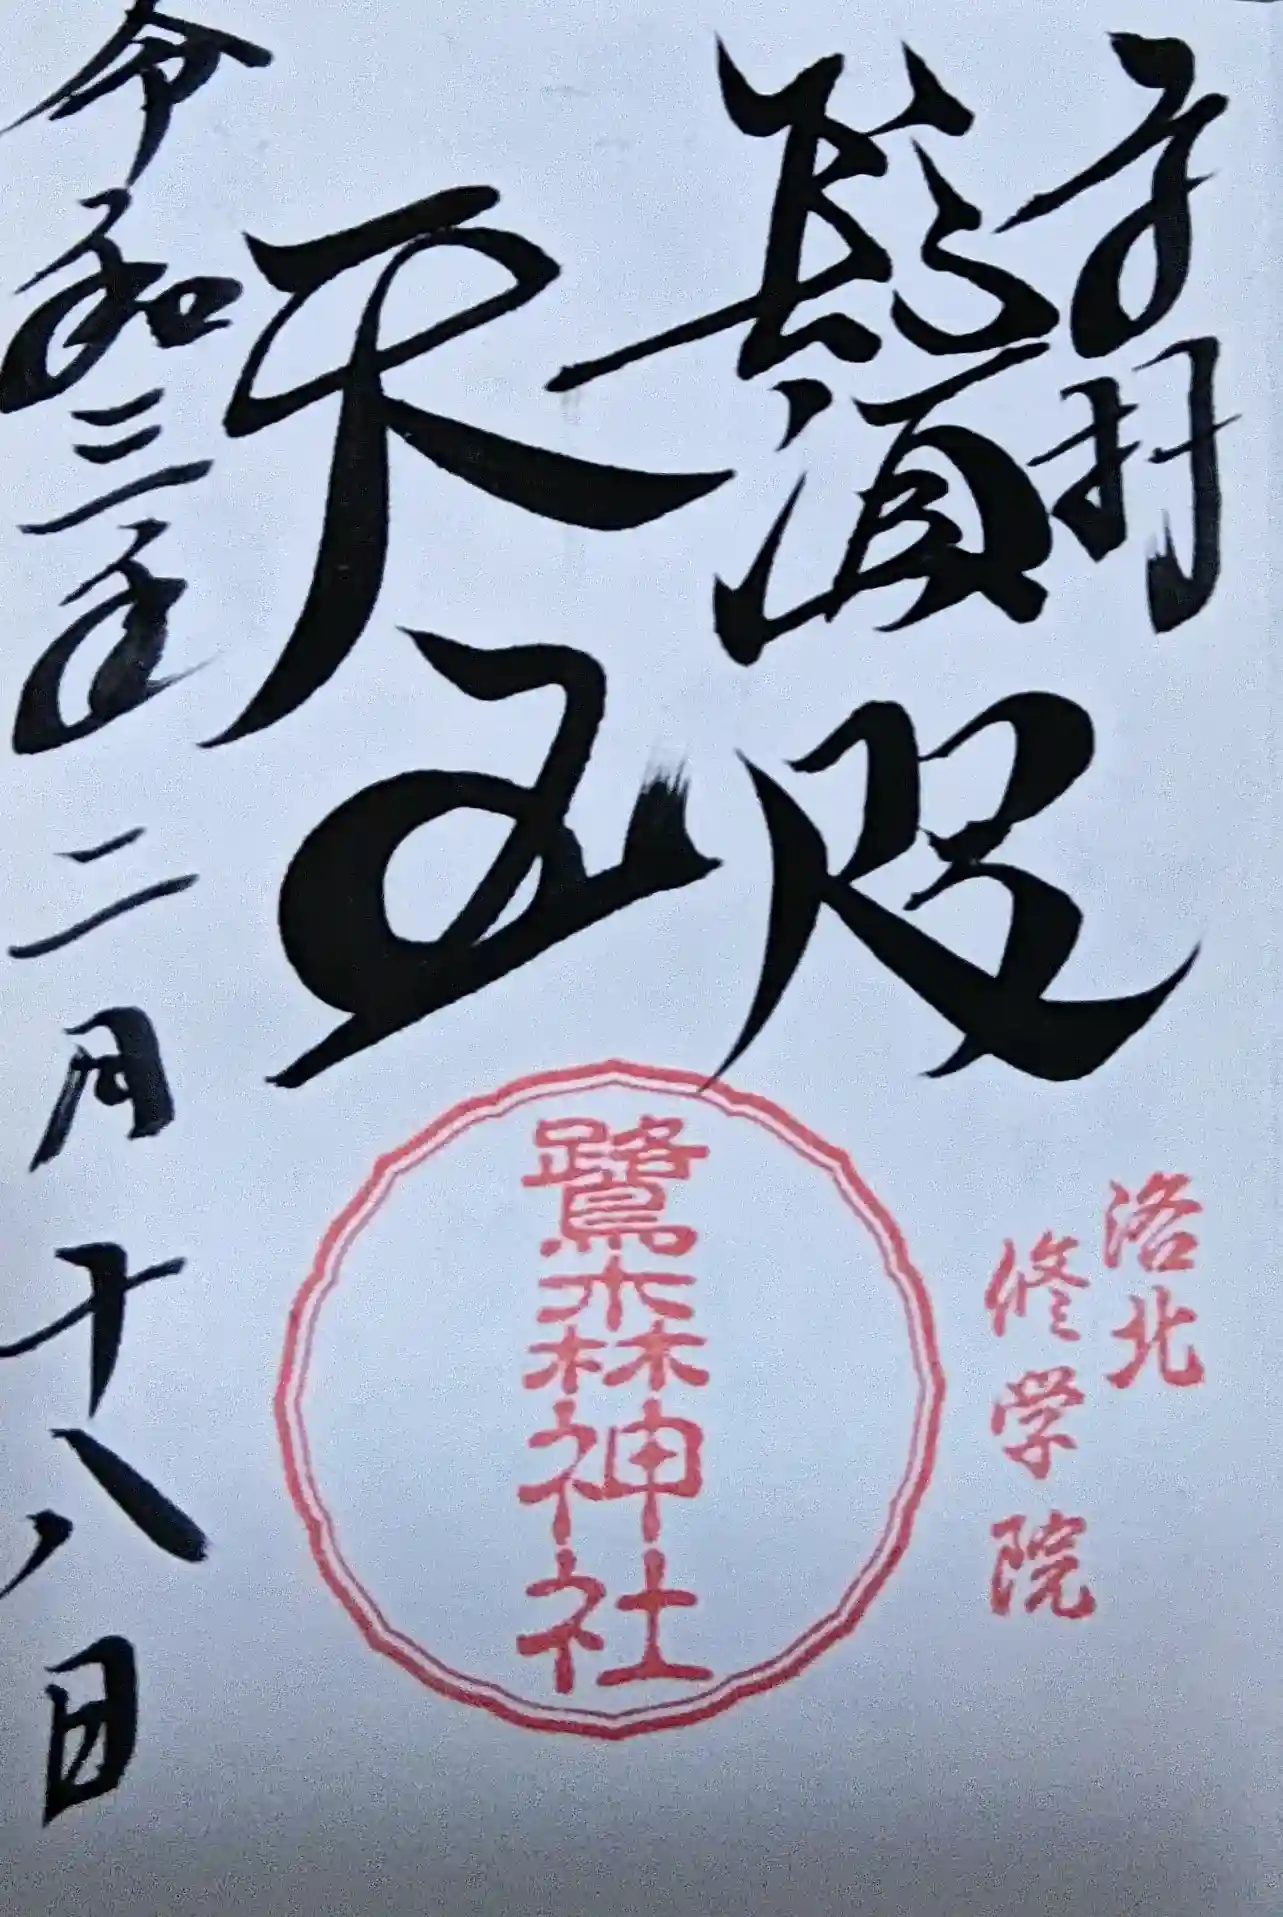 奉拝
洛北
修学院
鬚咫
天王
鷺森神社
令和三年二月十八日